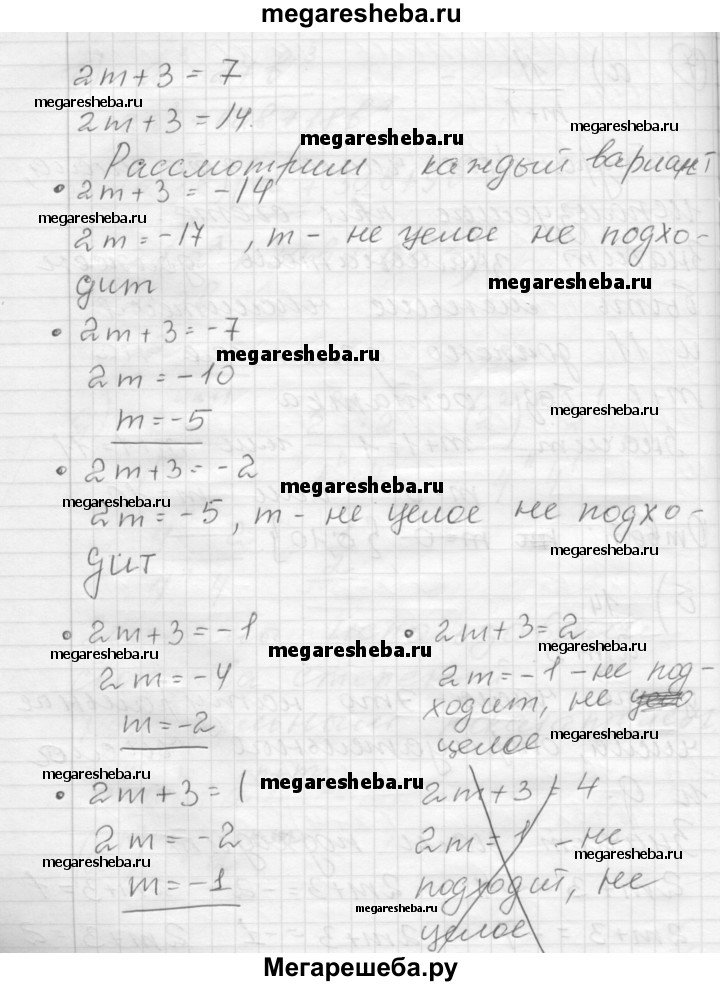 megaresheba.ru
2m+3=7
megaresheba.ru
2m+3=14.
megaresheba.ru
megaresheba.ru
Рассмотрим каждый вариант
• 2m+3=-14
megaresheba.ru
2m=-17, m - не целое не подхо-
дит
megaresheba.ru
• 2m+3=-7
megaresheba.ru
2m=-10
m=-5
megaresheba.ru
• 2m+3=-2
megaresheba.ru
megaresheba.ru
2m=-5, m - не целое не подхо-
дит
megaresheba.ru
• 2m+3=-1
megaresheba.ru
megaresheba.ru
2m=-4
m=-2
• 2m+3=2
megaresheba.ru
2m=-1 - не под-
ходит, не
целое
megaresheba.ru
megaresheba.ru
megaresheba.ru
• 2m+3=1
2m=-2
megaresheba.ru
m=-1
2m+3=4
2m=1 - не
megaresheba.ru
подходит, не
megaresheba.ru
целое
Мегарешеба.ру